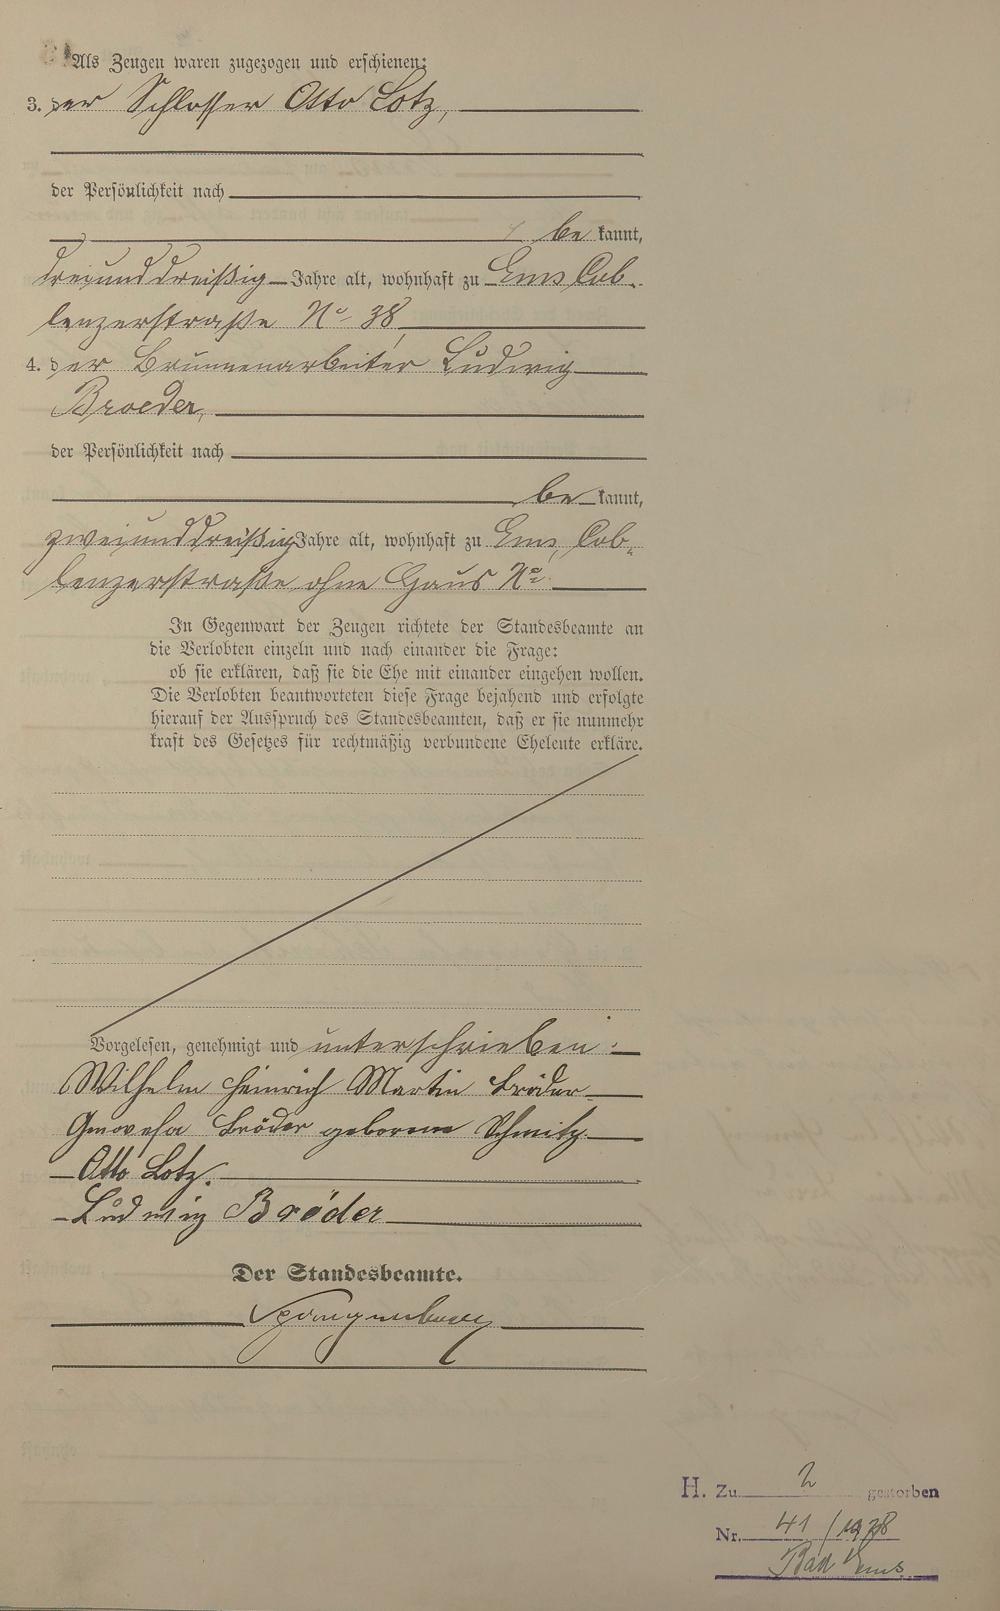 Als Zeugen waren zugezogen und erschienen:
3. der Schlosser Otto Lotz,
der Persönlichkeit nach
be kannt,
dreiunddreißig Jahre alt, wohnhaft zu Ems, Cob-
lenzerstraße No 38
4. der Brunnenarbeiter Ludwig
Broeder,
der Persönlichkeit nach
be kannt,
zweiunddreißig Jahre alt, wohnhaft zu Ems, Cob-
lenzerstraße ohne Haus No.
In Gegenwart der Zeugen richtete der Standesbeamte an
die Verlobten einzeln und nach einander die Frage:
ob sie erklären, daß sie die Ehe mit einander eingehen wollen.
Die Verlobten beantworteten diese Frage bejahend und erfolgte
hierauf der Ausspruch des Standesbeamten, daß er sie nunmehr
kraft des Gesetzes für rechtmäßig verbundene Eheleute erkläre.
Vorgelesen, genehmigt und unterschrieben:
Wilhelm Heinrich Martin Bröder
Genovefa Bröder geborene Schmitz
Otto Lotz.
Ludwig Bröder
Der Standesbeamte.
Spangenberg
H. Zu 2 gestorben
Nr. 41/1978
Bad Ems